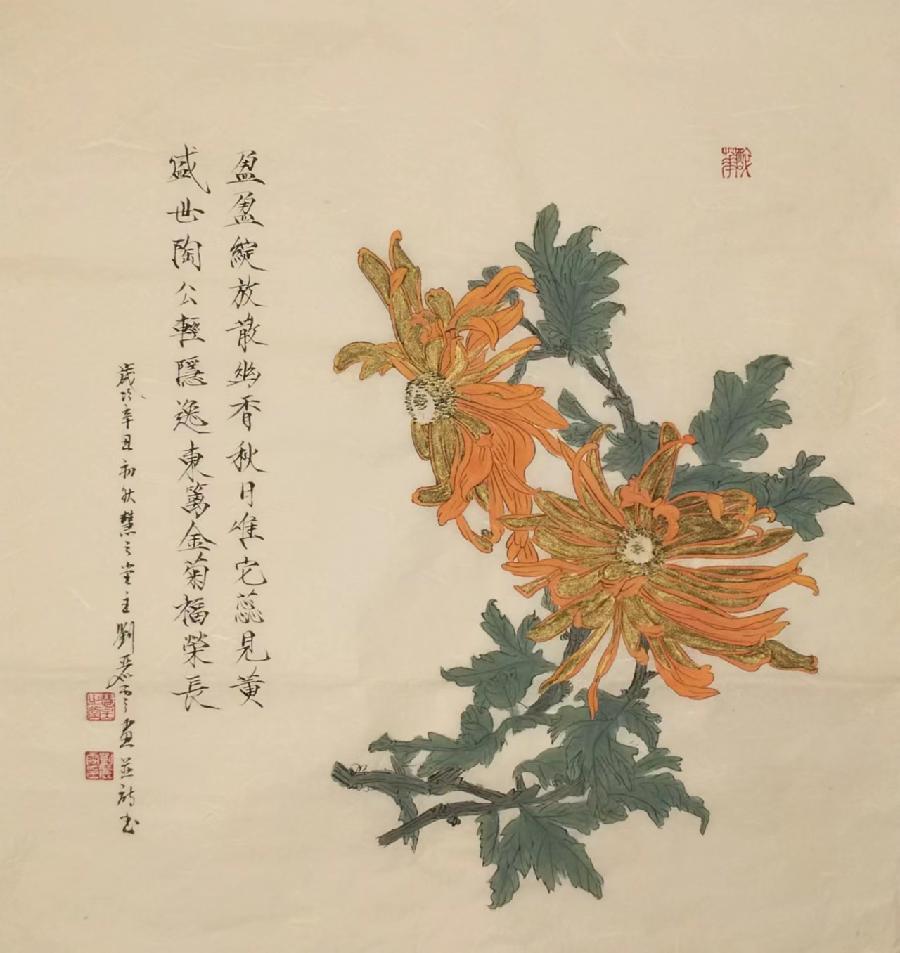 盈盈綻放散幽香秋日唯它蕊見黃
盛世陶公輕隱逸東篱金菊福榮長
歲次辛丑初秋慧之堂主劉畫並詩書